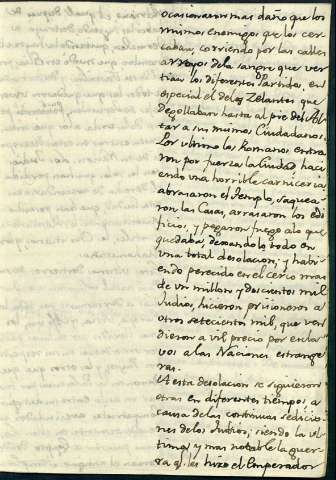 ocasionaron mas daño que los
mismos enemigos que los cer
caban, corriendo por las calles
arroyos de la sangre que ver
tian los diferentes Partidos, en
especial el de los Zelantes que
degollaban hasta al pie del Al
tar a sus mismos Ciudadanos.
Por ultimo los Romanos entra
ron por fuerza la Ciudad haci
endo una horrible carniceria,
abrasaron el Templo, saquea
ron las Casas, arrasaron los edi
ficios, y pegaron fuego a lo que
quedaba, dexandolo todo en
una total desolacion; y habi
endo perecido en el cerco mas
de un millon y doscientos mil
Judios, hicieron prisioneros a
otros setecientos mil, que ven
dieron a vil precio por escla
vos a las Naciones estrange
ras.
A esta desolacion se siguieron
otras en diferentes tiempos a
causa de las continuas sedicio
nes de los Judios; siendo la ul
tima, y mas notable la guer
ra q.e les hizo el Emperador